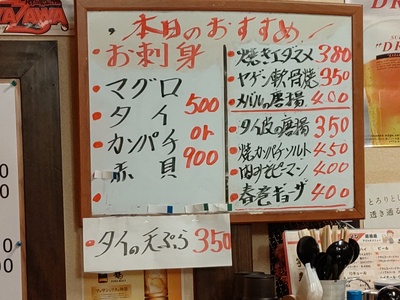 本日のおすすめ!
お刺身
・マグロ
・タイ
・カンパチ
・赤貝
500
or
900
・焼きエダマメ 380
・ヤゲン軟骨焼 350
・メバルの唐揚 400
・タイ皮の唐揚 350
・焼カンパチソルト 450
・肉すきピーマン 400
・春巻ギョーザ 400
・タイの天ぷら 350